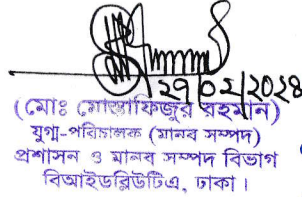 ২৭/০২/২০২৪
(মোঃ মোস্তাফিজুর রহমান)
যুগ্ম-পরিচালক (মানব সম্পদ)
প্রশাসন ও মানব সম্পদ বিভাগ
বিআইডব্লিউটিএ, ঢাকা।